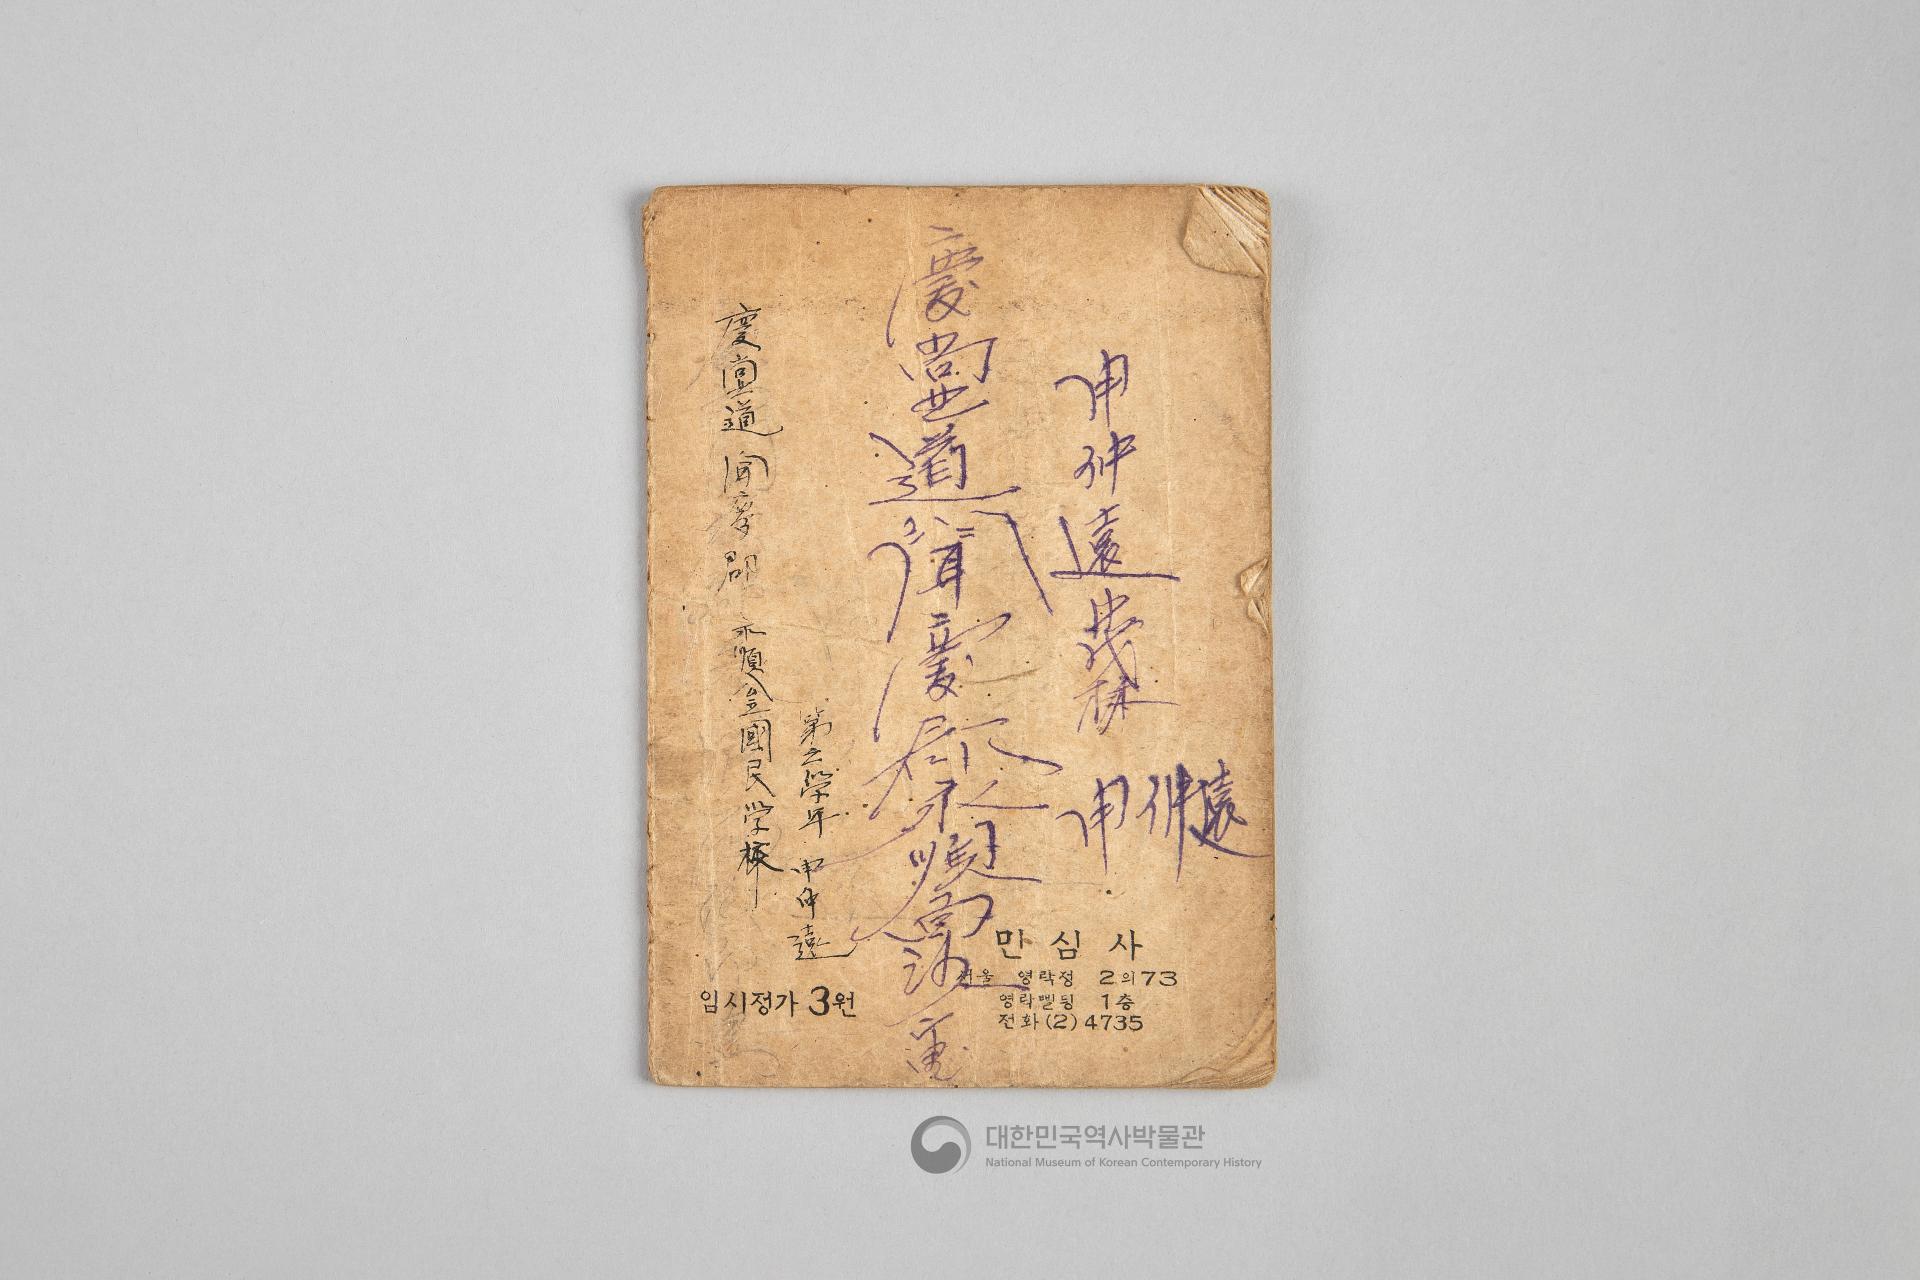 申仲遠
茂林
申仲遠
慶尙道聞慶郡永順面
慶尙道聞慶郡永順公国民学校
第之学年 申仲遠
임시정가 3원
민심사
서울 영락정 2의73
영락삘딍 1층
전화(2)4735
대한민국역사박물관
National Museum of Korean Contemporary History